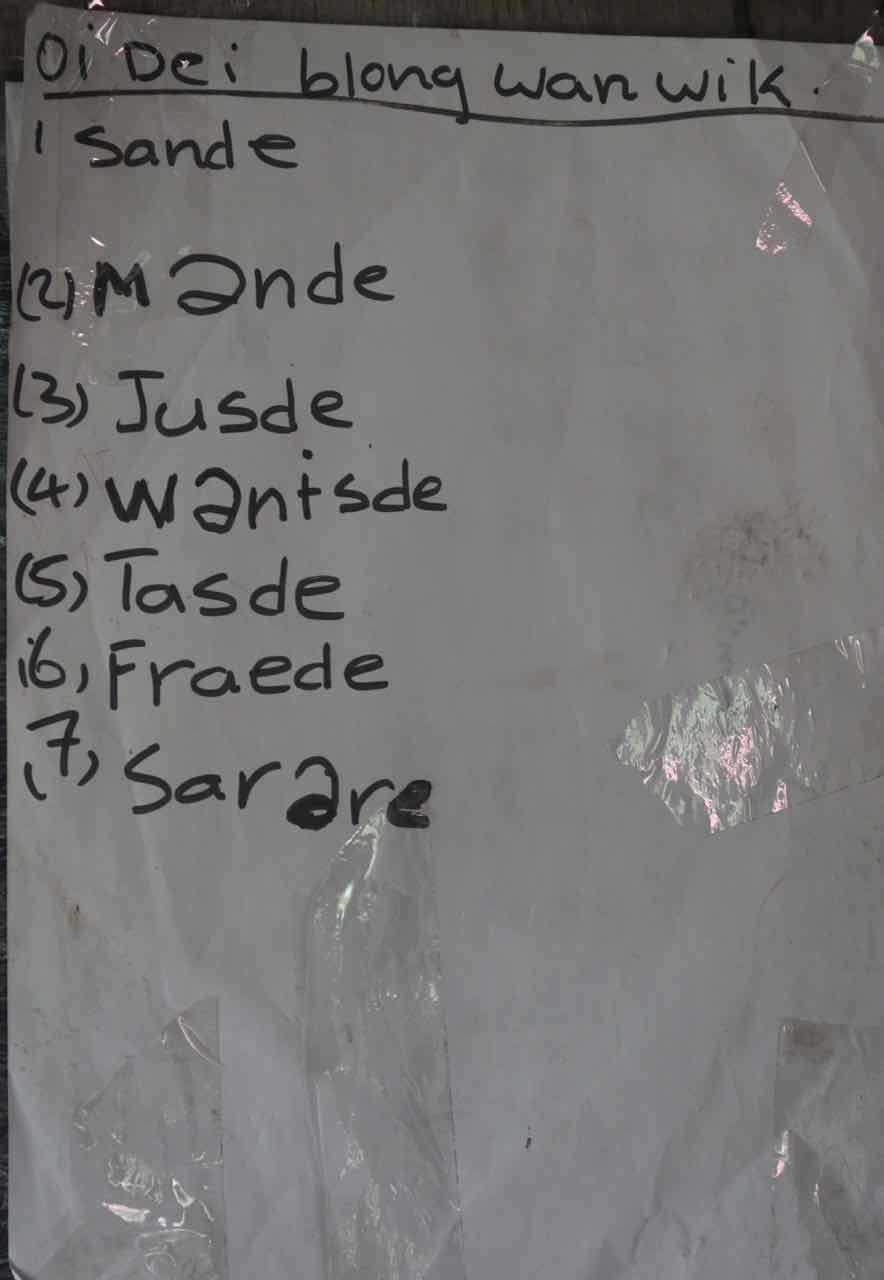 Oi Dei blong wan wik.
1 Sande
(2) Mande
(3) Jusde
(4) Wantsde
(5) Tasde
(6) Fraede
(7) Sarare